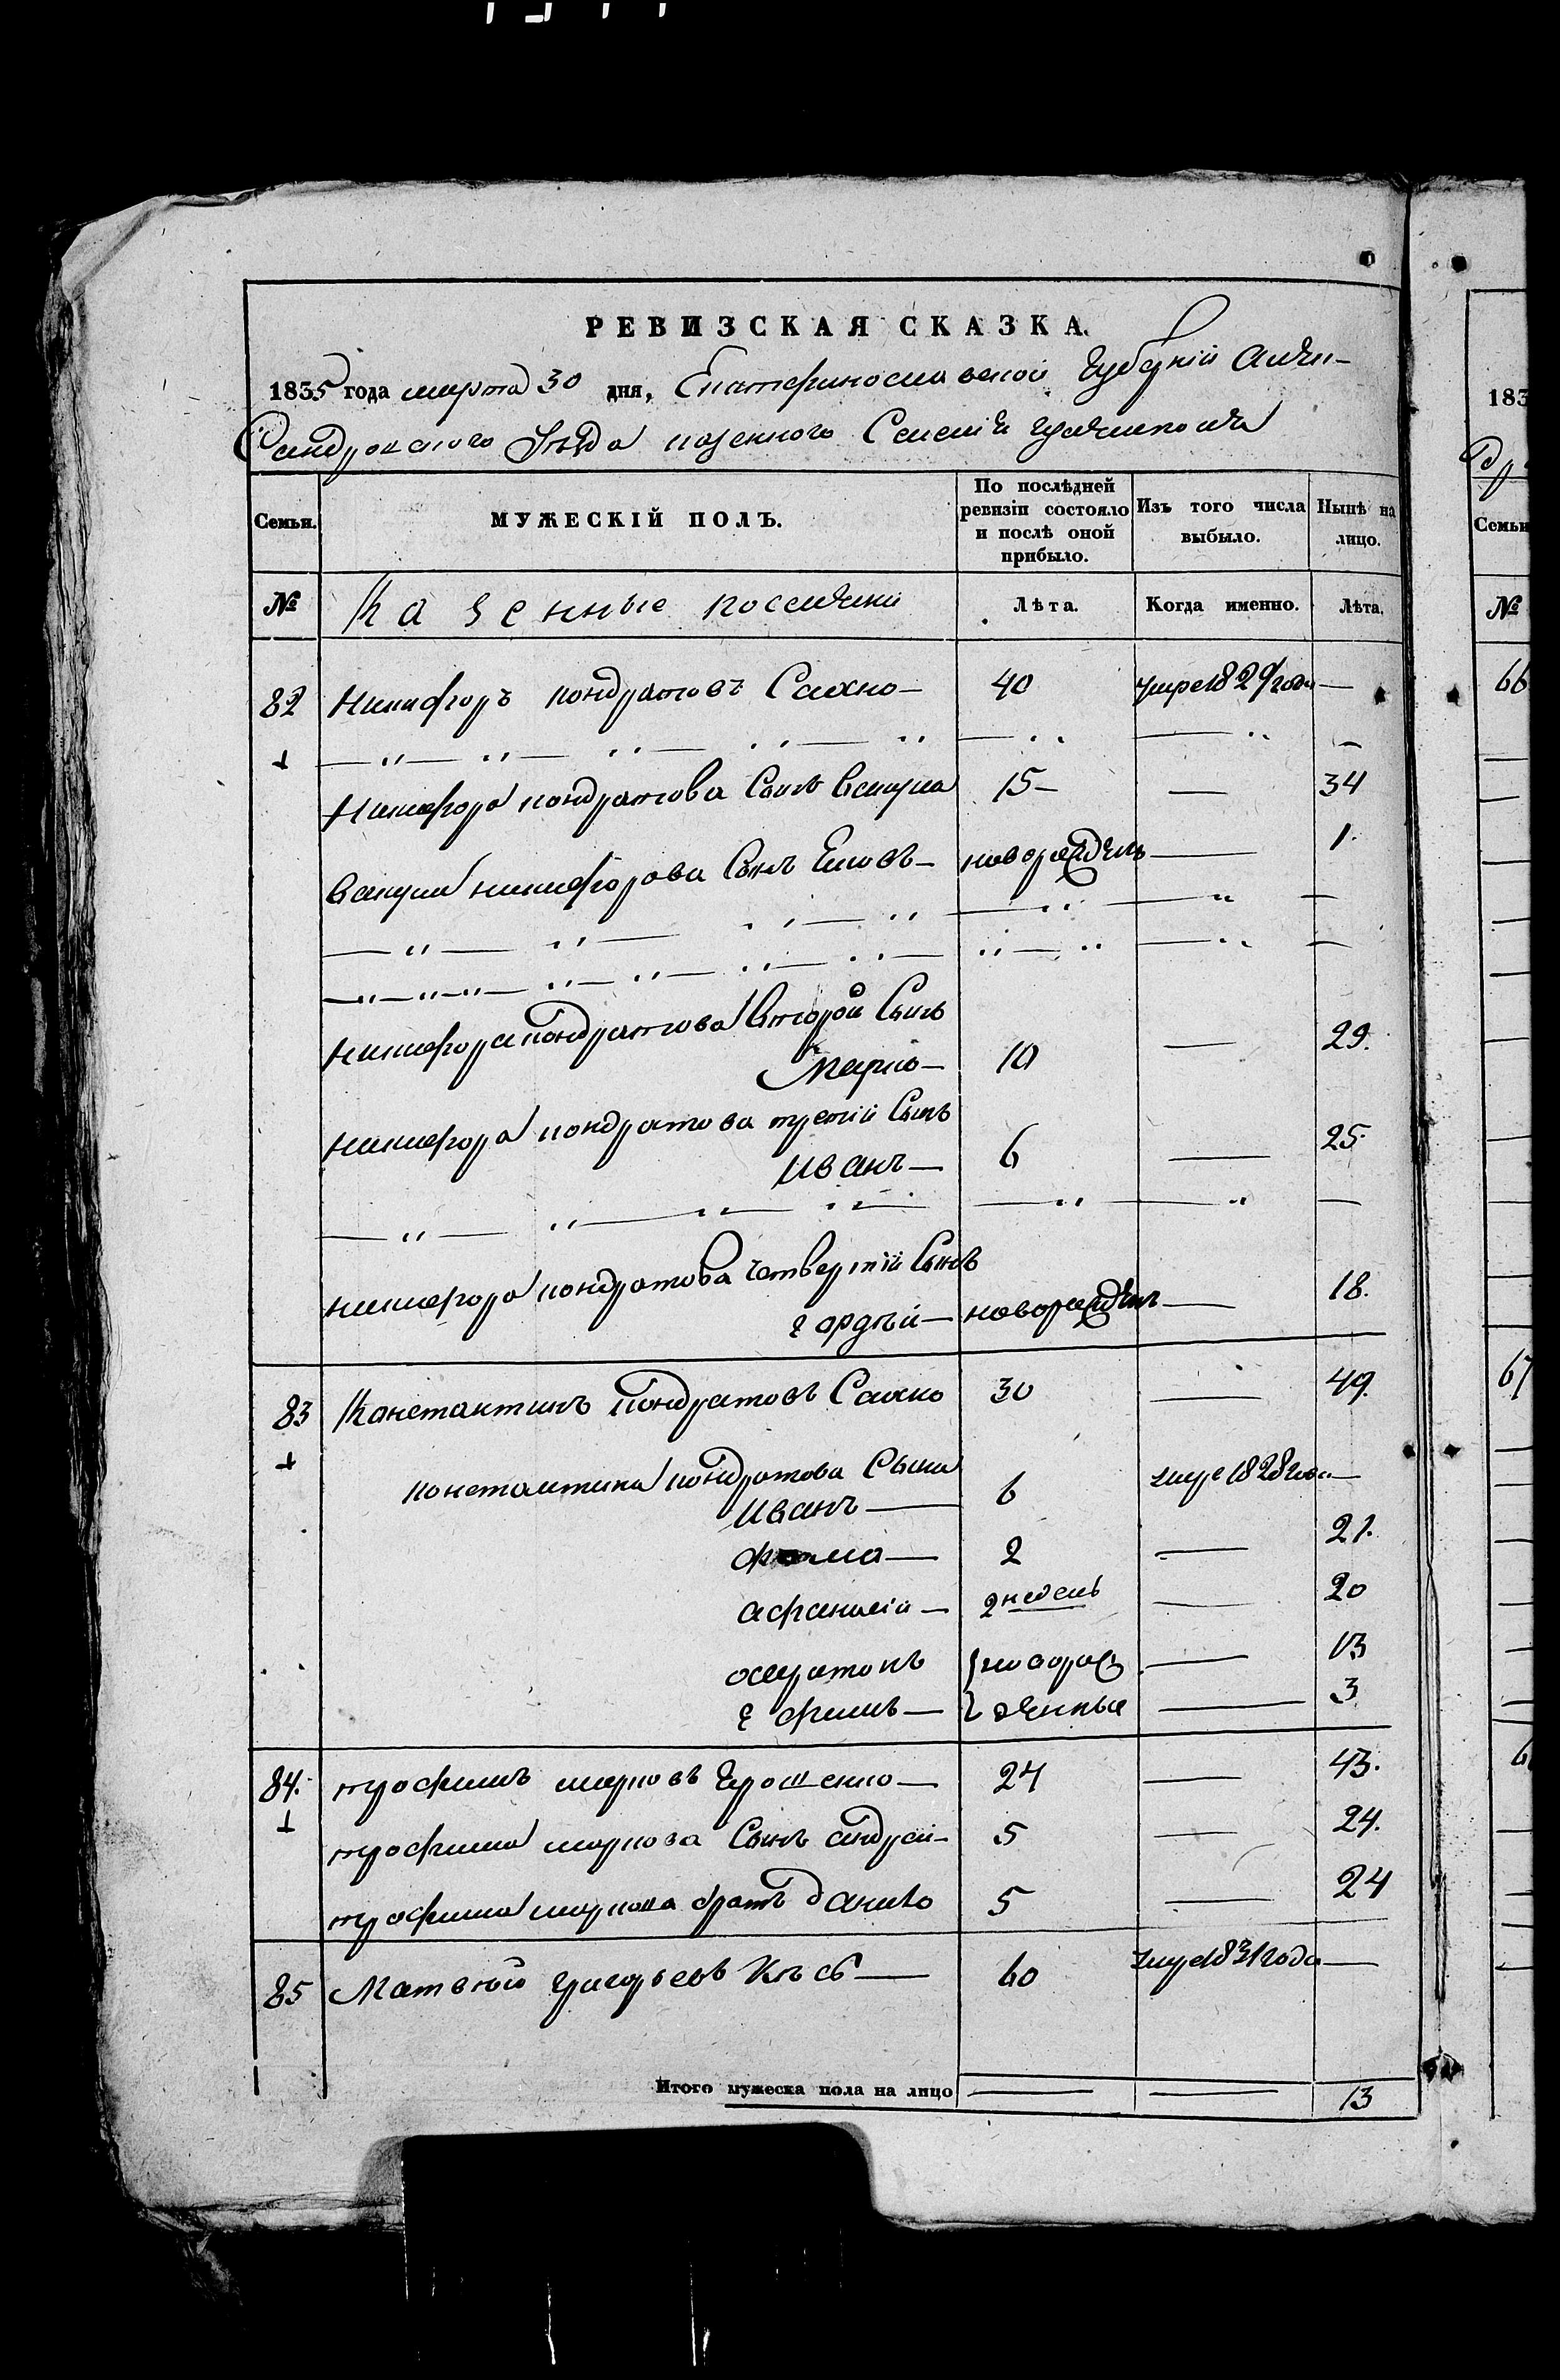 РЕВИЗСКАЯ СКАЗКА.
1835 года марта 30 дня, Екатеринославской Губерніи Алек-
сандровского уѣзда казенного Селенія
Семьи.
МУЖЕСКІЙ ПОЛЪ.
По послѣдней ревизіи состояло и послѣ оной прибыло.
Изъ того числа выбыло.
Нынѣ на лицо.
№ Казенные поселяни Лѣта. Когда именно. Лѣта.
82 Никифоръ кондратовъ Сахно — 40 умре 1829 года —
Никифора кондратова Сынъ 15 — — 34
никифорова Сынъ — новорожденъ — 1.
Никифора кондратова второй Сынъ
Марко — 10 — 29.
никифора кондратова третій Сынъ
иванъ — 6 — 25.
никифора кондратова четвертій Сынъ
гордѣй — новорожденъ — 18.
83 Константинъ кондратовъ Сахно 30 — 49.
константина кондратова Сыни
иванъ — 6 умре 1828 года —
фома — 2 — 21.
афанасій — 2 недель — 20
новорож — 13
ефимъ — денные — 3
84. трофимъ марковъ Ерошенко — 24 — 43.
трофима маркова Сынъ андрей — 5 — 24.
трофима маркова братъ данило 5 — 24
85 Матвѣй григорьевъ — 60 умре 1831 года —
Итого мужеска пола на лицо — — 13
183
Семьи
№
66
67